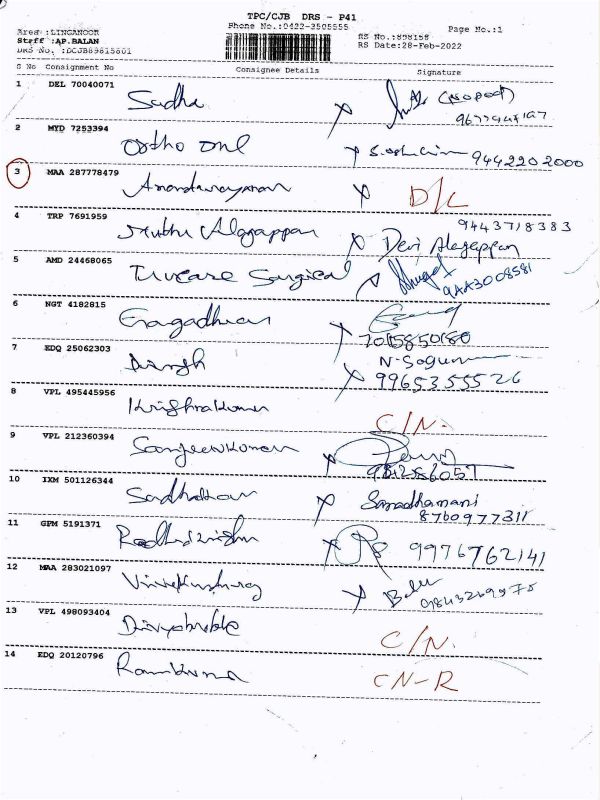 TPC/CJB DRS - P41
Phone No.:0422-3505555
Page No.:1
Area :LINGANOOR
Staff :AP.BALAN
DRS No. :DCJB89615801
RS No.:898158
RS Date:28-Feb-2022
S No Consignment No Consignee Details Signature
1 DEL 70040071 Sudha
2 MYD 7253394 Ortho one 9442202000
3 MAA 287778479 Anandanarayanan D/L
4 TRP 7691959 Muthu Alagappan 9443718383
Devi Alagappan
5 AMD 24468065 Trucare Surgical 9443008581
6 NGT 4182815 Gangadharan
7015850180
7 EDQ 25062303
9965355526
8 VPL 495445956 Krishnakumar C/N.
9 VPL 212360394 Sanjeevkumar
10 IXM 501126344 Sadhamani
8760977311
11 GPM 5191371 Radhakrishnan 9976762141
12 MAA 283021097
13 VPL 498093404 C/N.
14 EDQ 20120796 Ramkumar CN-R